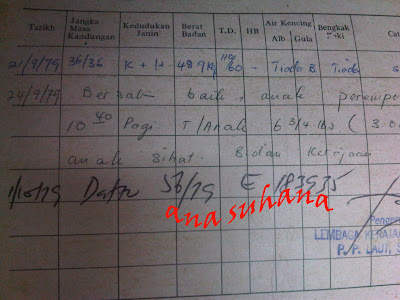 Tarikh Jangka Masa Kandungan Kedudukan Janin Berat Badan T.D. HB Air Kencing Alb. Gula Bengkak Kaki
21/9/79 36/36 K + H 48.9 Kg 110/60 - Tiada B Tiada
24/9/79 Bersalin baik, anak peremp
10 40 Pagi T/Anak 6 3/4 lbs ( 3.0
anak sihat. Bidan Kerajaan
1/10/79 Daftar 56/79 E 183935
ana suhana
LEMBAGA KERAJA
P.P. LAUT, S